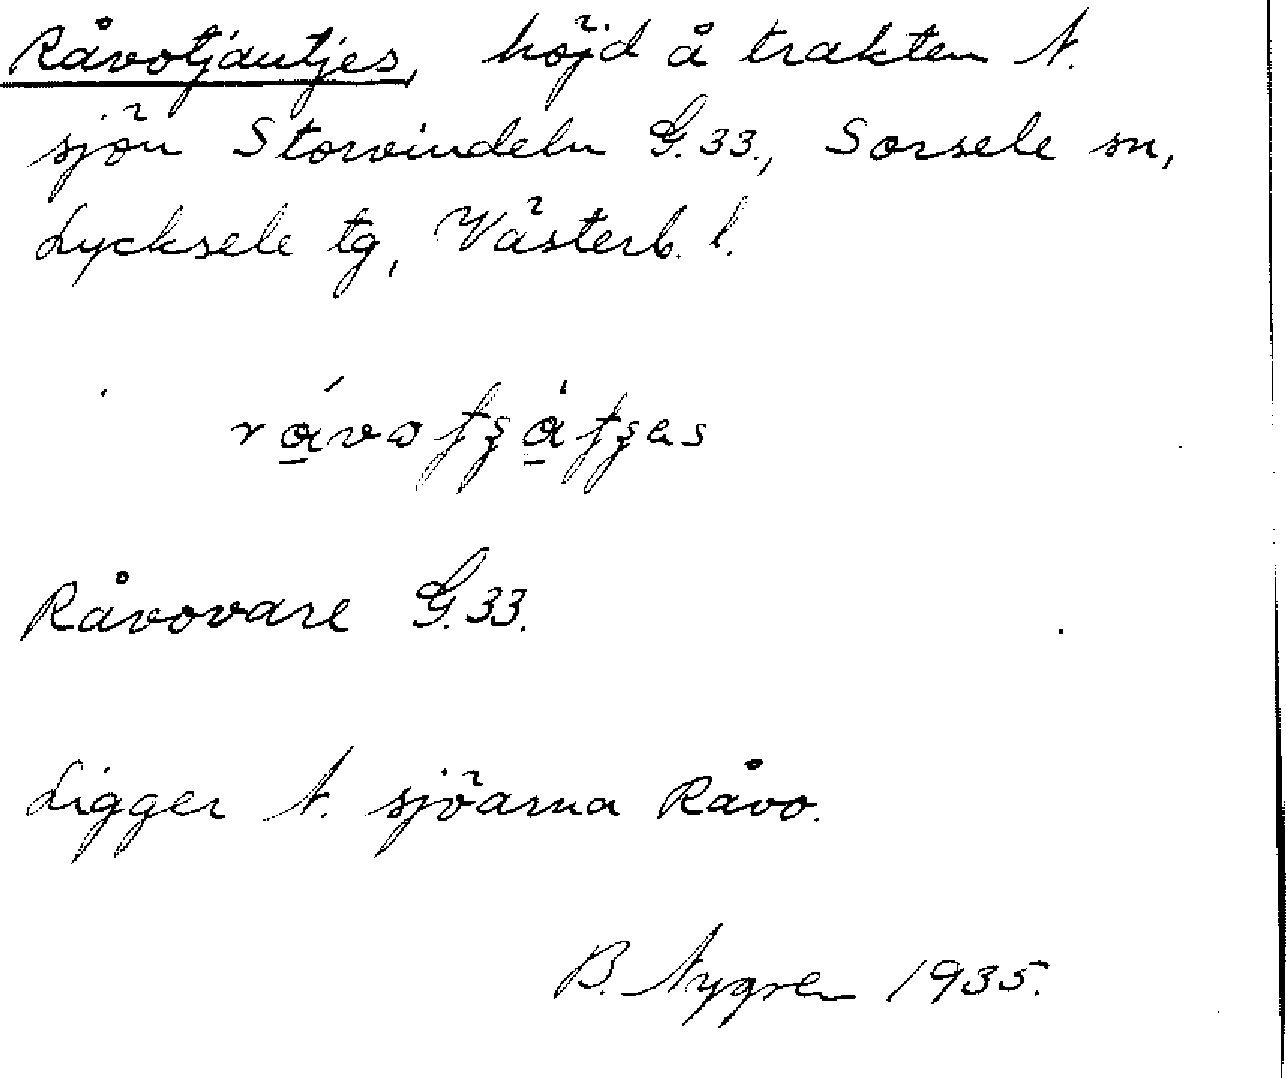 Råvotjautjes, höjd å trakten N.
sjön Storvindeln G. 33., Sorsele sn,
Lycksele tg, Västerb. l.
Råvovare G. 33.
Ligger N. sjöarna Råvo.
B. Nygren 1935.